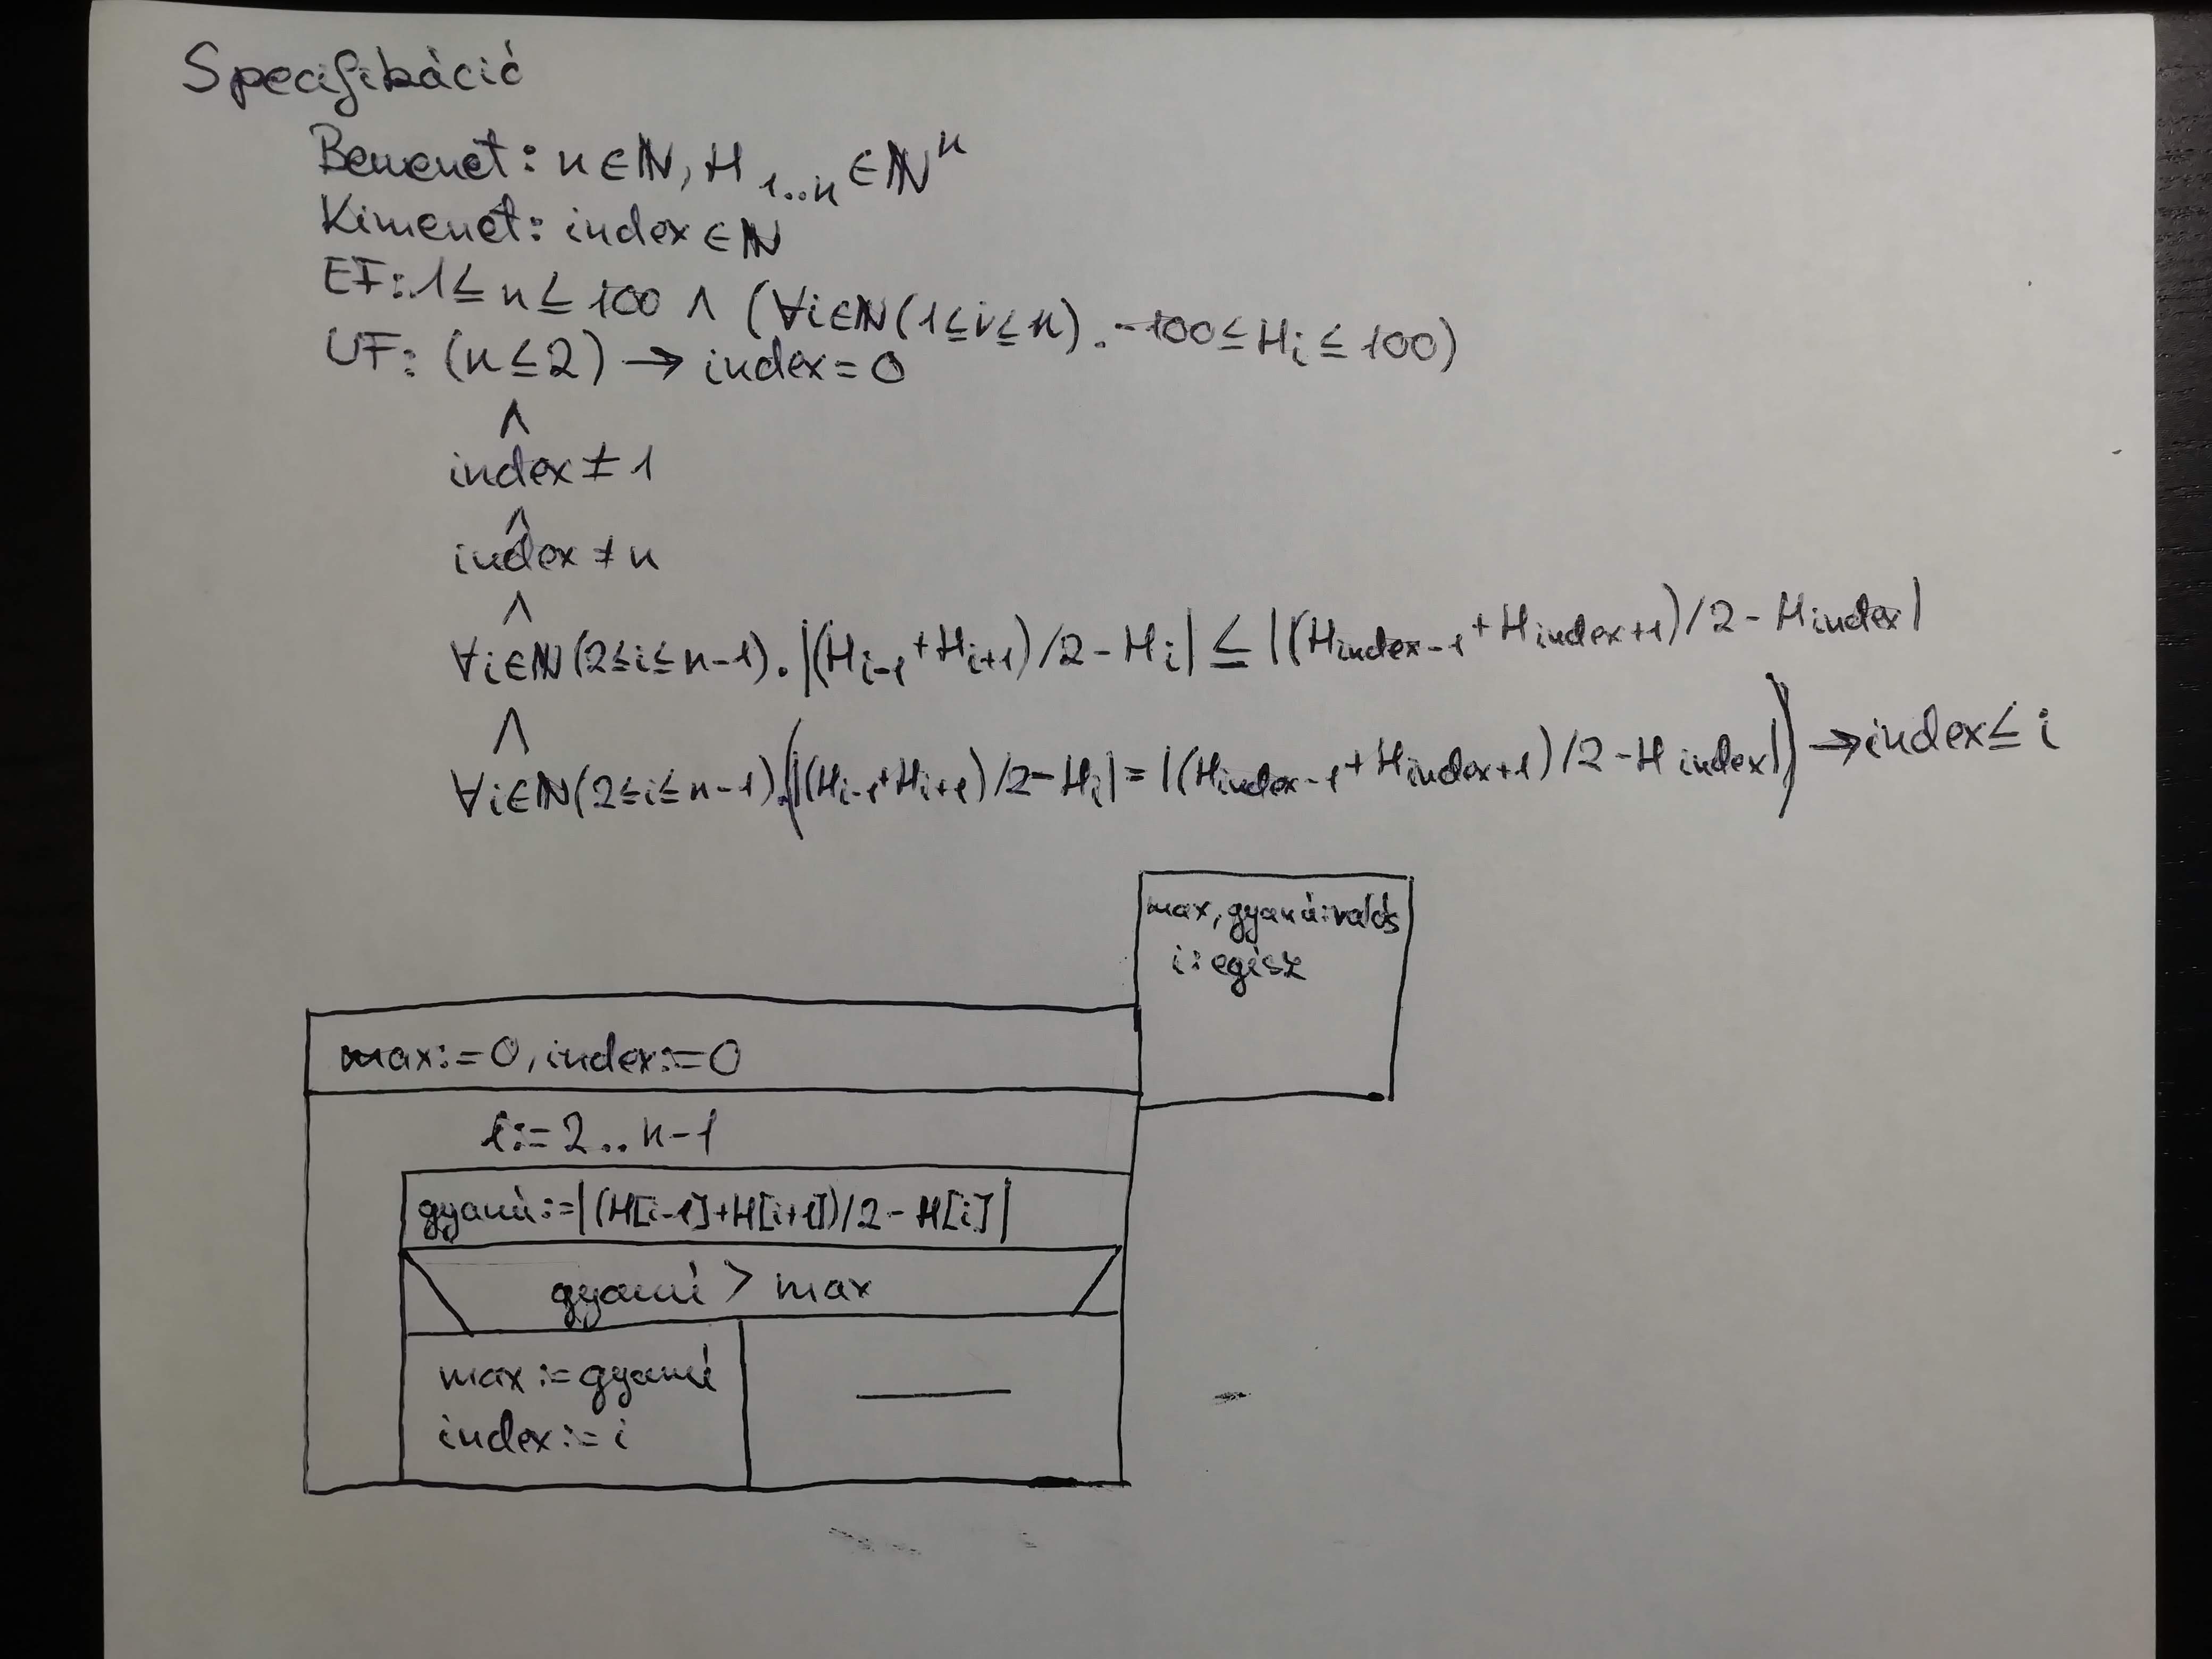 Specifikáció
Bemenet: n∈ℕ, H1..n ∈ℕ^n
Kimenet: index∈ℕ
EF: 1≤n≤100 ∧ (∀i∈ℕ(1≤i≤n). -100≤Hi≤100)
UF: (n≤2) → index=0
∧
index≠1
∧
index≠n
∧
∀i∈ℕ(2≤i≤n-1). |(Hi-1+Hi+1)/2-Hi| ≤ |(Hindex-1+Hindex+1)/2-Hindex|
∧
∀i∈ℕ(2≤i≤n-1).(|(Hi-1+Hi+1)/2-Hi|=|(Hindex-1+Hindex+1)/2-Hindex|) →index≤i
max, gyanú:valós
i:egész
max:=0, index:=0
i:=2..n-1
gyanú:=|(H[i-1]+H[i+1])/2-H[i]|
gyanú > max
max:=gyanú
index:=i